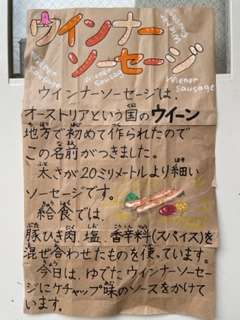 ウインナー
ソーセージ
Wiener
sausage
ウインナーソーセージは、
オーストリアという国のウイーン
地方で初めて作られたので
この名前がつきました。
太さが20ミリメートルより細い
ソーセージです。
給食では、
豚ひき肉、塩、香辛料(スパイス)を
混ぜ合わせたものを使っています。
今日は、ゆでたウインナーソーセー
ジにケチャップ味のソースをかけて
います。